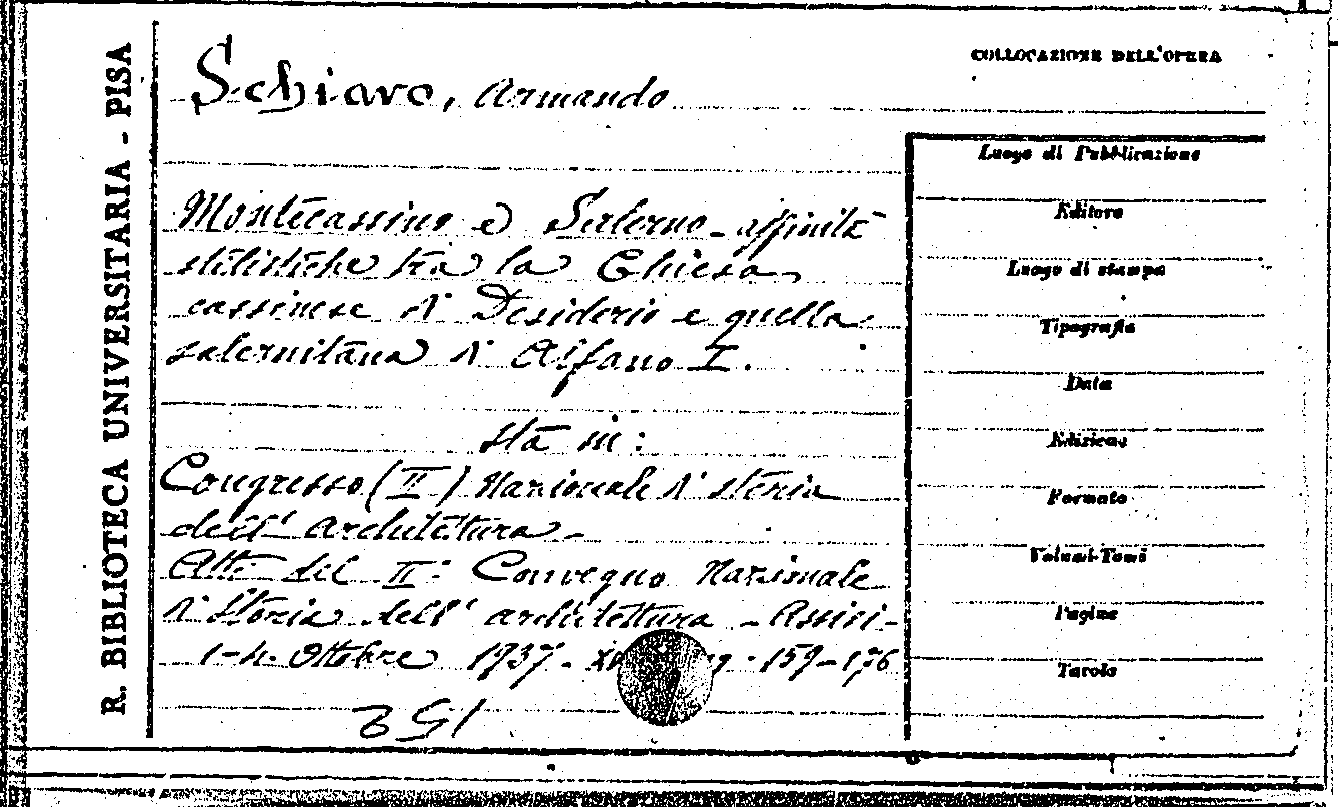 R. BIBLIOTECA UNIVERSITARIA - PISA
Schiavo, Armando
COLLOCAZIONE DELL'OPERA
Montecassino e Salerno - affinità
stilistiche tra la Chiesa
cassinese di Desiderio e quella
salernitana di Alfano I.
sta in:
Congresso (II) Nazionale di storia
dell' architettura -
Atti del II° Convegno Nazionale
di Storia dell' architettura - Assisi -
1-4. Ottobre 1937 - 159-176
Luogo di Pubblicazione
Editore
Luogo di stampa
Tipografia
Data
Edizione
Formato
Volumi-Tomi
Pagine
Tavole